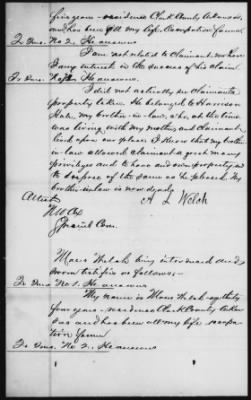 five years - residence Clark County Arkansas
and has been all my life. Occupation farmer
To Ques. No 2. He answers
I am not related to claimant. nor have
I any interest in the success of his claim
To Ques. No 3 He answers.
I did not actually see claimants
property taken. He belonged to Harrison
my brother in law, who, at the time
was living with my mother, and claimant
lived upon our place. I know that my brother-
in-law allowed claimant a great many
privileges and to have and own property and
to dispose of the same as he pleased. My
brother-in-law is now dead
A L Welch
Attest
Special Com.
Moses Welch being introduced and
sworn testifies as follows;-
To Ques No 1. He answers
My name is Moses Welch age thirty
four years - residence Clark County Arkan
sas and has been all my life. occupa
tion farmer
To Ques. No 2. He answers